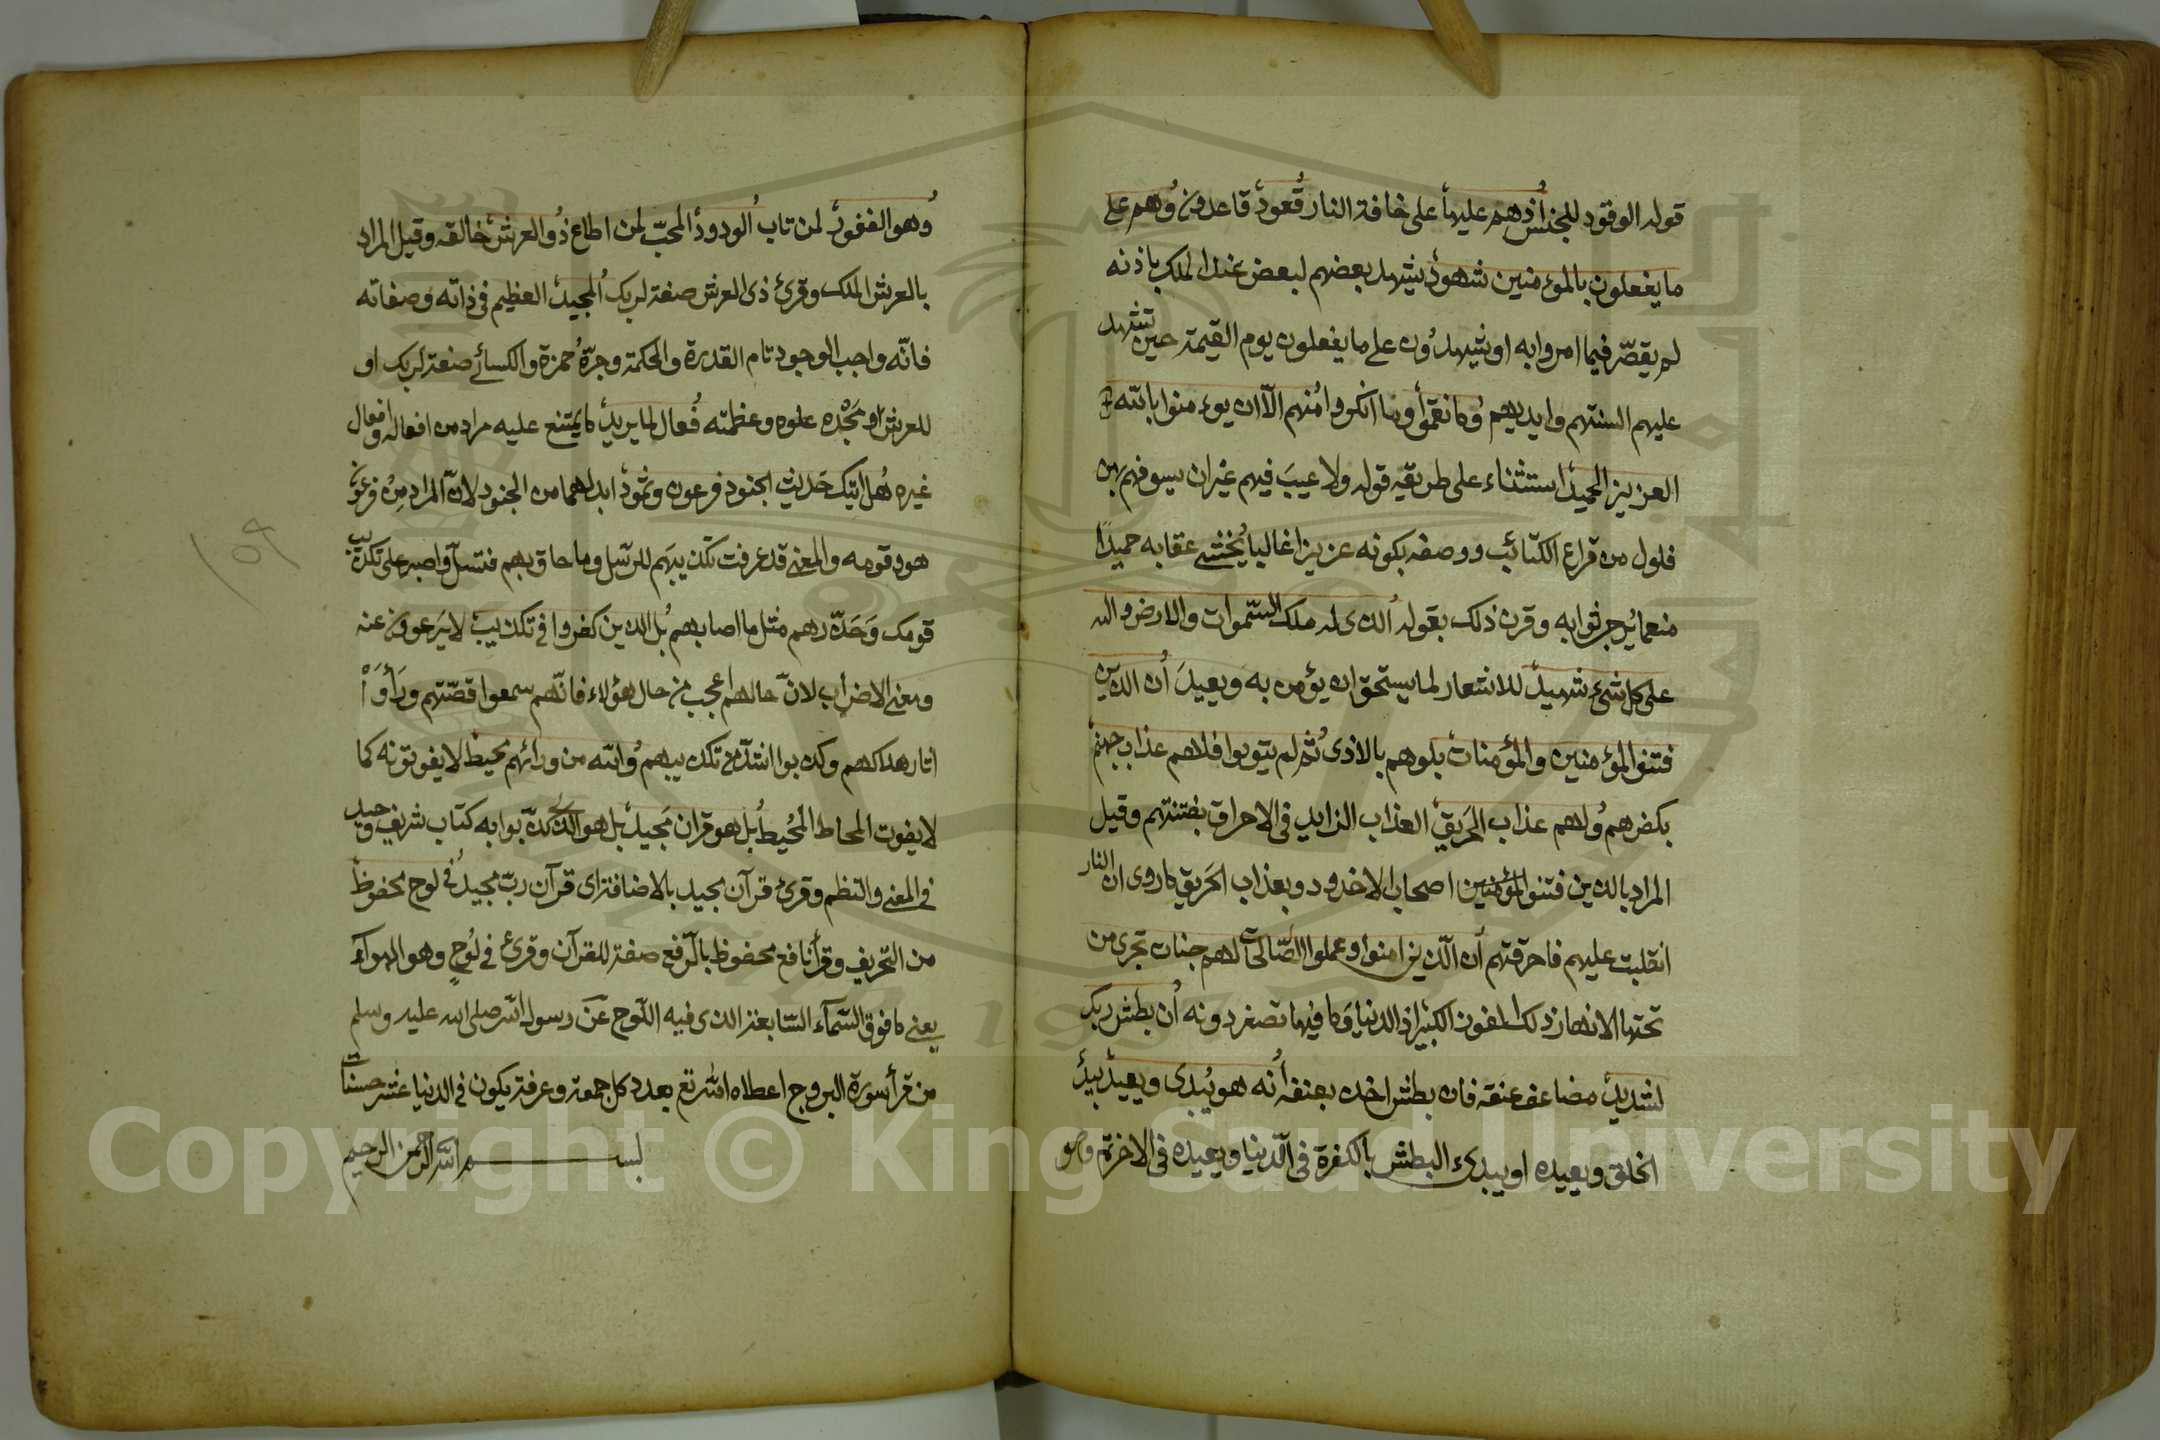 قوله الوقود للجنس اذ هم عليها على حافة النار قعود قاعدون وهم على
ما يفعلون بالمؤمنين شهود يشهد بعضهم لبعض عند الملك بانه
لم يقصّر فيما امروا به او يشهدون على ما يفعلون يوم القيمة حين تشهد
عليهم السنتهم وايديهم وما نقموا وما انكروا منهم الّا ان يؤمنوا بالله
العزيز الحميد استثناء على طريقة قوله ولا عيبَ فيهم غير ان سيوفهم بهن
فلول من قراع الكتائب ووصفه بكونه عزيزا غالبا يُخشى عقابه حميدًا
منعما يُرجى ثوابه وقرن ذلك بقوله الذى له ملك السّموات والارض والله
على كل شئ شهيد للاشعار لما يستحق ان يؤمن به ويعبد ان الذين
فتنوا المؤمنين والمؤمنات بلوهم بالاذى ثم لم يتوبوا فلهم عذاب جهنم
بكفرهم ولهم عذاب الحَريق العذاب الزايد فى الاحراق بفتنتهم وقيل
المراد بالذين فتنوا المؤمنين اصحاب الاخدود وبعذاب الحَريق ما روى ان النار
انقلبت عليهم فاحرقتهم ان الّذين امنوا وعملوا الصّالحات لهم جنات تجرى من
تحتها الانهار ذلك الفوز الكبير اذ الدنيا وَما فيها تصغر دونه ان بطش ربك
لشديد مضاعف عنفه فان بطش اخذ بعنف انه هو يُبدى ويعيد يبدئ
الخلق ويعيده او يبدئ البطش بالكفرة فى الدّنيا ويعيده فى الاخرة وهو
وهو الغفور لمن تاب الودود المحبّ لمن اطاع ذو العرش خالقه وقيل المراد
بالعرش الملك وقرئ ذى العرش صفة لربك المجيد العظيم فى ذاته وصفاته
فانّه واجب الوجود تام القدرة والحكمة وجرّه حمزة والكسائى صفة لربك او
للعرش او مَجْده علوه وعظمته فعال لما يريد لا يمتنع عليه مراد من افعاله وافعال
غيره هل اتيك حديث الجنود فرعون وثمود ابدلهما من الجنود لانّ المراد من فرعون
هو وقومه والمعنى قد عرفت تكذيبهم للرّسل وما حاق بهم فتسلّ واصبر على تكذيب
قومك وَحَذّرهم مثل ما اصابهم بل الذين كفروا فى تكذيب لا يرعوون عنه
ومعنى الاضراب لانّ حالهم اعجب من حال هؤلاء فانّهم سمعوا قصّتهم ورَأَوْا
اثار هلاكهم وكذبوا اشدّ من تكذيبهم والله من ورائهم محيط لا يفوتونه كما
لا يفوت المحاط المُحيط بل هو قران مَجيد بل هو الذى كذّبوا به كتاب شريف وحيد
فى المعنى والنظم وقرئ قرآن مجيد بالاضافة اى قرآن ربّ مجيد فى لوح محفوظ
من التّحريف وقرأ نافع محفوظ بالرّفع صفة للقرآن وقرئ فى لُوحٍ وهو الهوآء
يعنى ما فوق السّمآء السّابعة الذى فيه اللّوح عَن رسول الله صلى الله عليه وسلم
من قرأ سورة البروج اعطاه الله تع بعدد كل جمعة وعرفة يكون فى الدنيا عشر حسنات
بسم الله الرحمن الرحيم
١٥٩
Copyright © King Saud University
1957